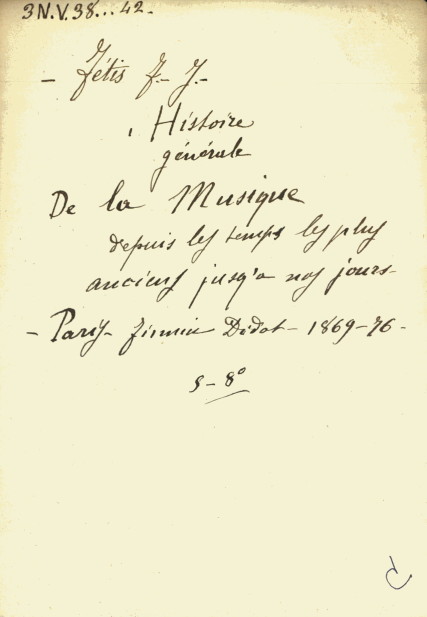 3N.V.38...42.
- Fétis F. J. -
Histoire
générale
De la Musique
depuis les temps les plus
anciens jusqu'a nos jours-
- Paris- Firmin Didot - 1869-76-
5-8°